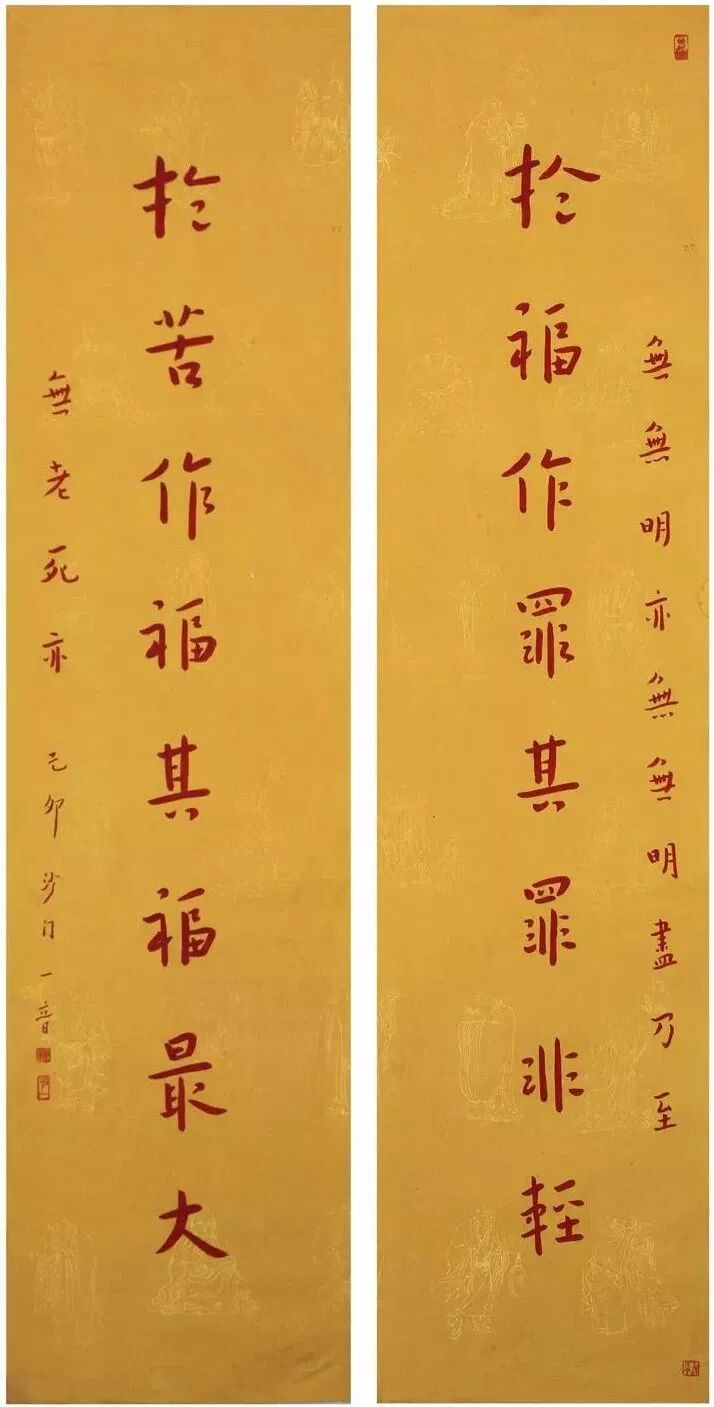 無無明亦無無明盡乃至
於福作罪其罪非輕
於苦作福其福最大
無老死亦 己卯沙门一音